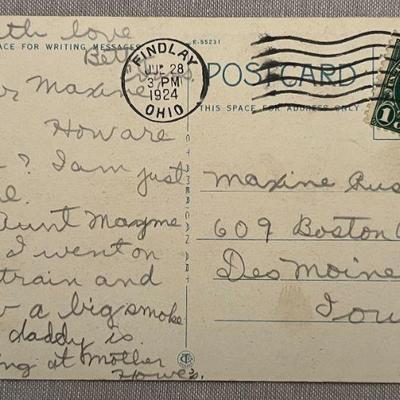 th love
Bett
ACE FOR WRITING MESSAGES
E-55231
FINDLAY
28
3 PM
1924
OHIO
POSTCARD
THIS SPACE FOR ADDRESS ONLY
1
r Maxine
How are
? I am just
e.
Aunt Mayme
I went on
train and
w a big smoke
daddy is
ng at Mother
Howe's.
Maxine Rus
609 Boston
Des Moine
Iow